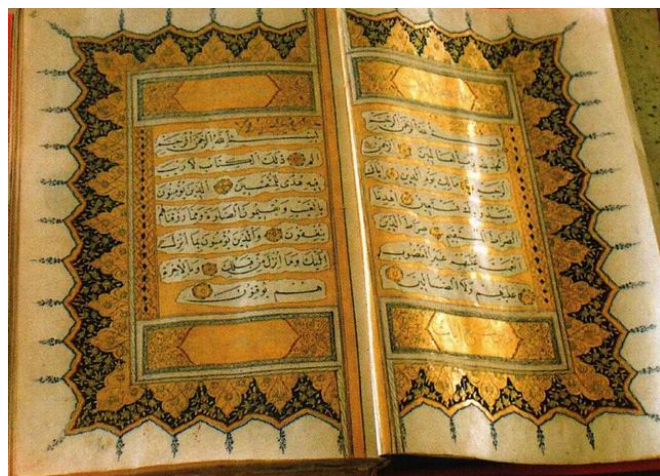 بسم الله الرحمن الرحيم
الحمد لله رب العالمين الرحمن
الرحيم مالك يوم الدين إياك
نعبد وإياك نستعين اهدنا
الصراط المستقيم صراط الذين
أنعمت عليهم غير المغضوب
عليهم ولا الضالين
بسم الله الرحمن الرحيم
الم ذلك الكتاب لا ريب
فيه هدى للمتقين الذين يؤمنون
بالغيب ويقيمون الصلوة ومما رزقناهم
ينفقون والذين يؤمنون بما أنزل
إليك وما أنزل من قبلك وبالآخرة
هم يوقنون